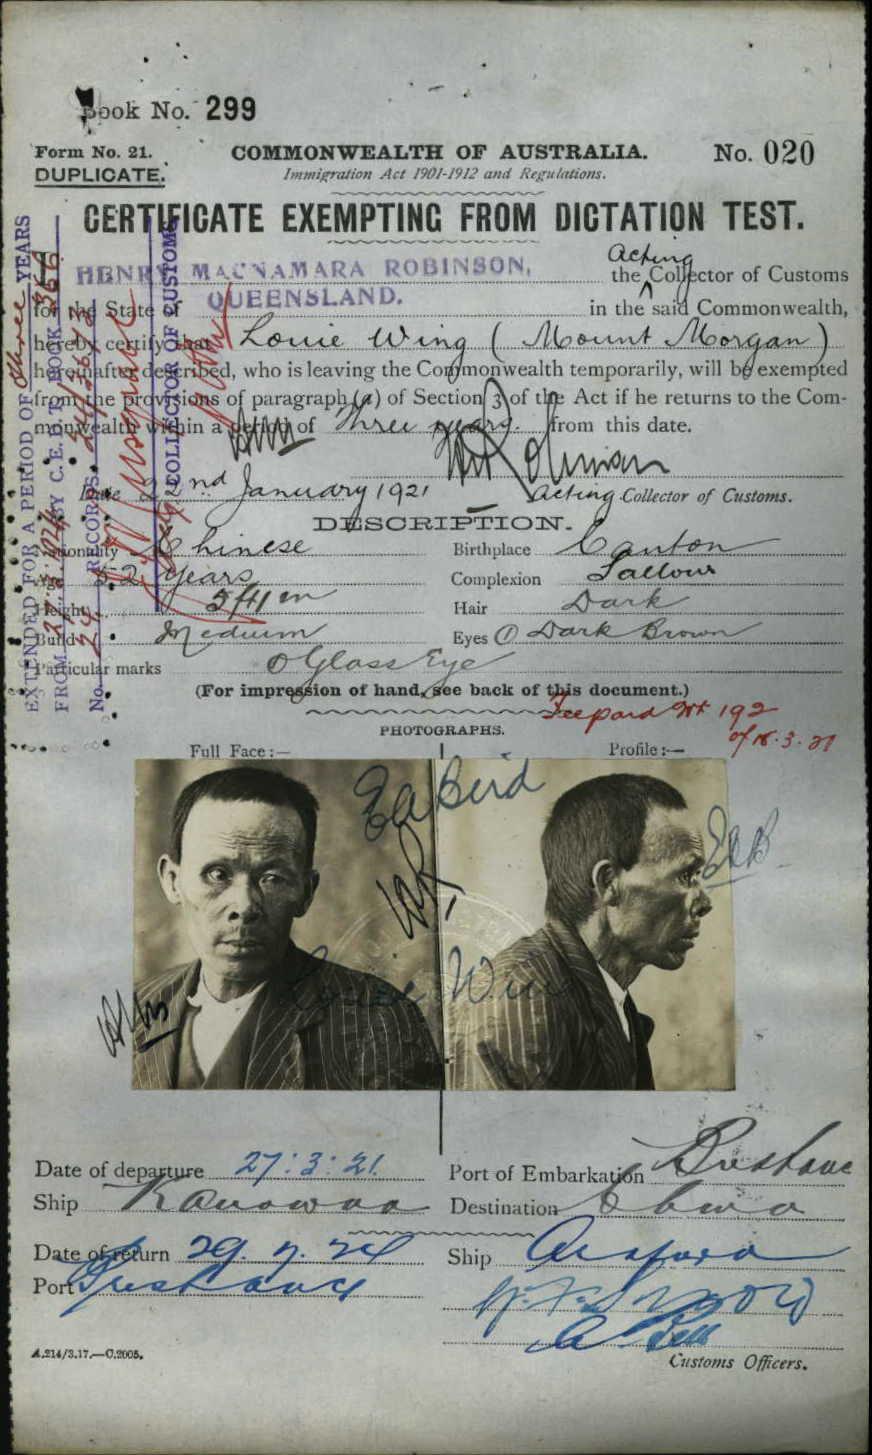 Book No. 299
Form No. 21. COMMONWEALTH OF AUSTRALIA. No. 020
DUPLICATE. Immigration Act 1901-1912 and Regulations.
CERTIFICATE EXEMPTING FROM DICTATION TEST.
HENRY MACNAMARA ROBINSON, the Acting Collector of Customs
for the State of QUEENSLAND. in the said Commonwealth,
hereby certify that Louie Wing ( Mount Morgan )
hereinafter described, who is leaving the Commonwealth temporarily, will be exempted
from the provisions of paragraph (a) of Section 3 of the Act if he returns to the Com-
monwealth within a period of Three years. from this date.
Date 22nd January 1921 Acting Collector of Customs.
DESCRIPTION.
Nationality Chinese Birthplace Canton
Age 52 years Complexion Sallow
Height Hair Dark
Build Medium Eyes Dark Brown
Particular marks Glass Eye
(For impression of hand, see back of this document.)
192
of 18.3.21
PHOTOGRAPHS.
Full Face :— Profile :—
EA Bird
EAB
Louie Wing
Date of departure 27:3:21. Port of Embarkation Brisbane
Ship Kanowna Destination China
Date of return 29.7.24 Ship Arafura
Port Brisbane
Customs Officers.
A.214/3.17.—C.2005.
EXTENDED FOR A PERIOD OF three YEARS
FROM BY C.E.D.T. BOOK
No. RECORDS.
COLLECTOR OF CUSTOMS